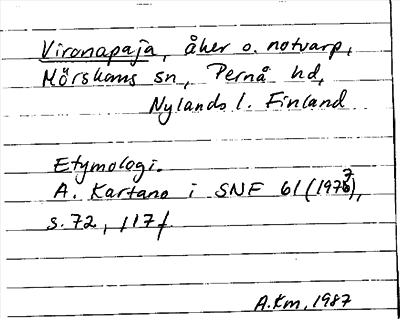 Vironapaja, åker o. notvarp,
Mörskoms sn, Pernå hd,
Nylands l. Finland
Etymologi.
A. Kartano i SNF 61 (1977),
s. 72, 117 f
A.Km, 1987